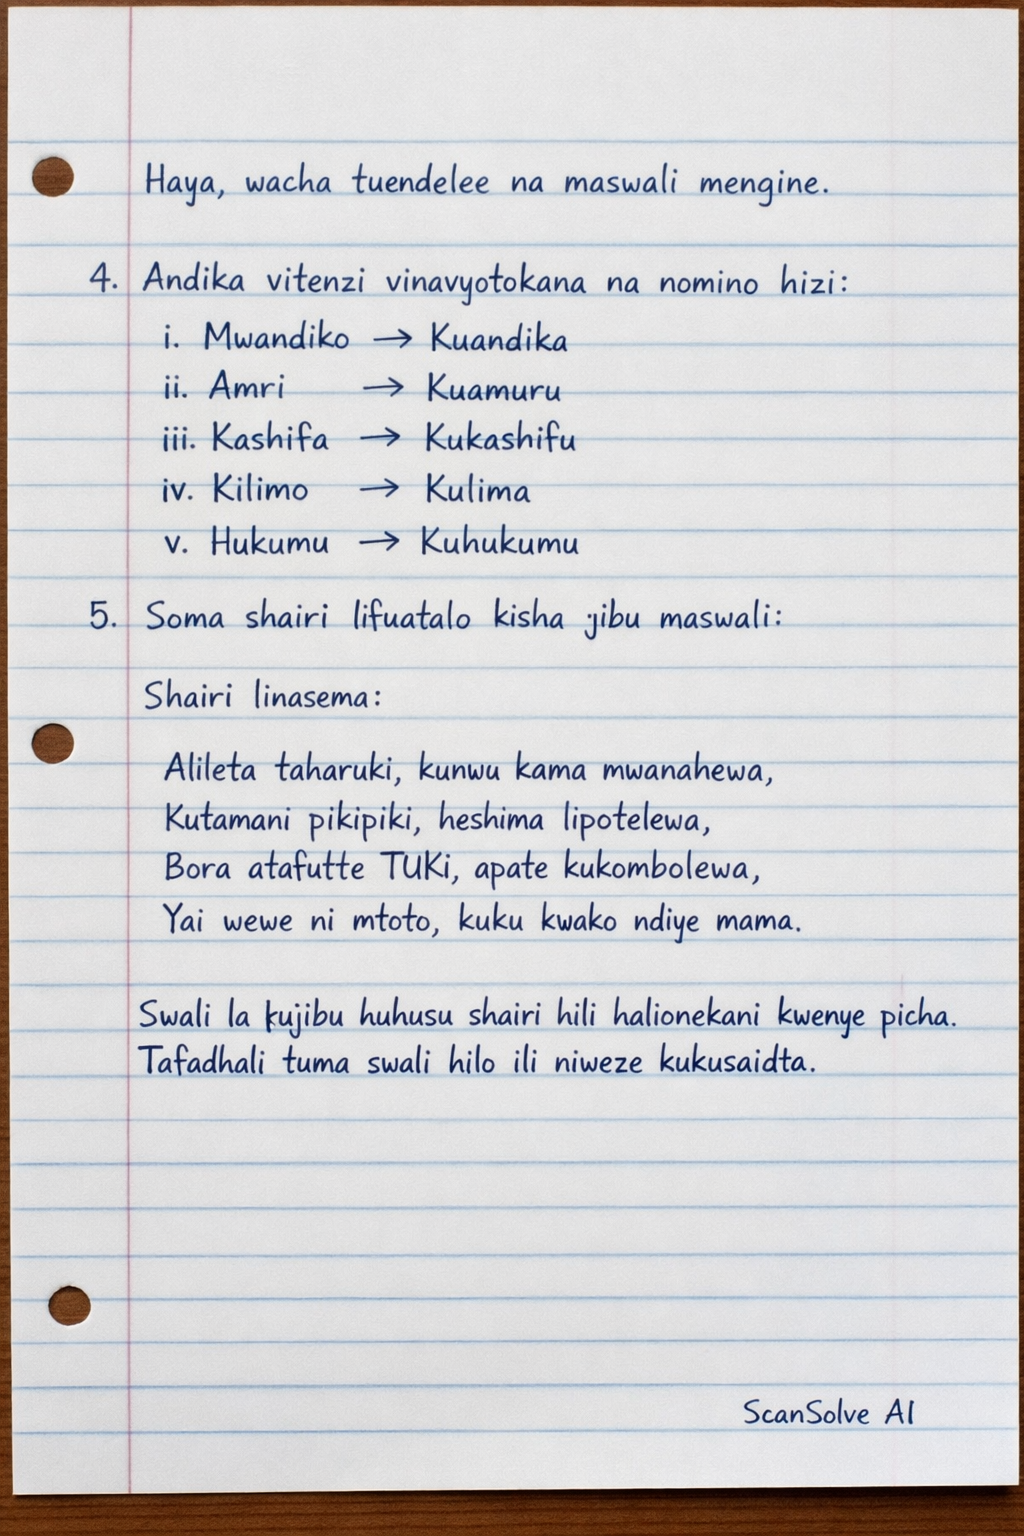 Haya, wacha tuendelee na maswali mengine.
4. Andika vitenzi vinavyotokana na nomino hizi:
i. Mwandiko → Kuandika
ii. Amri → Kuamuru
iii. Kashifa → Kukashifu
iv. Kilimo → Kulima
v. Hukumu → Kuhukumu
5. Soma shairi lifuatalo kisha jibu maswali:
Shairi linasema:
Alileta taharuki, kunwu kama mwanahewa,
Kutamani pikipiki, heshima lipotelewa,
Bora atafutte TUKi, apate kukombolewa,
Yai wewe ni mtoto, kuku kwako ndiye mama.
Swali la kujibu huhusu shairi hili halionekani kwenye picha.
Tafadhali tuma swali hilo ili niweze kukusaidta.
ScanSolve AI